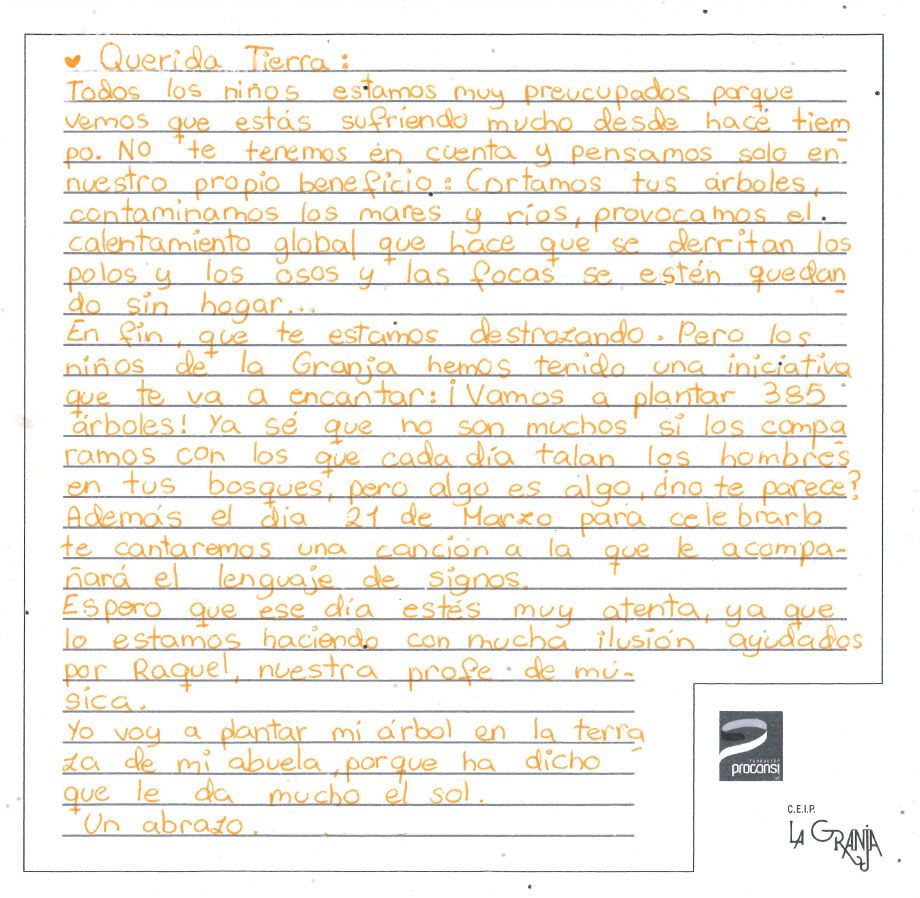 ♥ Querida Tierra:
Todos los niños estamos muy preucupados porque
vemos que estás sufriendo mucho desde hace tiem
po. No te tenemos en cuenta y pensamos solo en
nuestro propio beneficio: Cortamos tus árboles,
contaminamos los mares y ríos, provocamos el
calentamiento global que hace que se derritan los
polos y los osos y las focas se estén quedan
do sin hogar...
En fin, que te estamos destrozando. Pero los
niños de la Granja hemos tenido una iniciativa
que te va a encantar: ¡Vamos a plantar 385
árboles! Ya sé que no son muchos si los compa
ramos con los que cada día talan los hombres
en tus bosques, pero algo es algo, ¿no te parece?
Además el día 21 de Marzo para celebrarlo
te cantaremos una canción a la que le acompa-
ñará el lenguaje de signos.
Espero que ese día estés muy atenta, ya que
lo estamos haciendo con mucha ilusión ayudados
por Raquel, nuestra profe de mú-
sica.
Yo voy a plantar mi árbol en la terra
za de mi abuela, porque ha dicho
que le da mucho el sol.
Un abrazo.
fundación
proconsi
C.E.I.P.
LA GRANJA